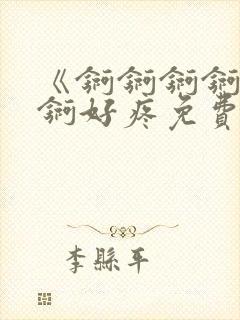 《锕锕锕锕
锕好疼免費
李縣平